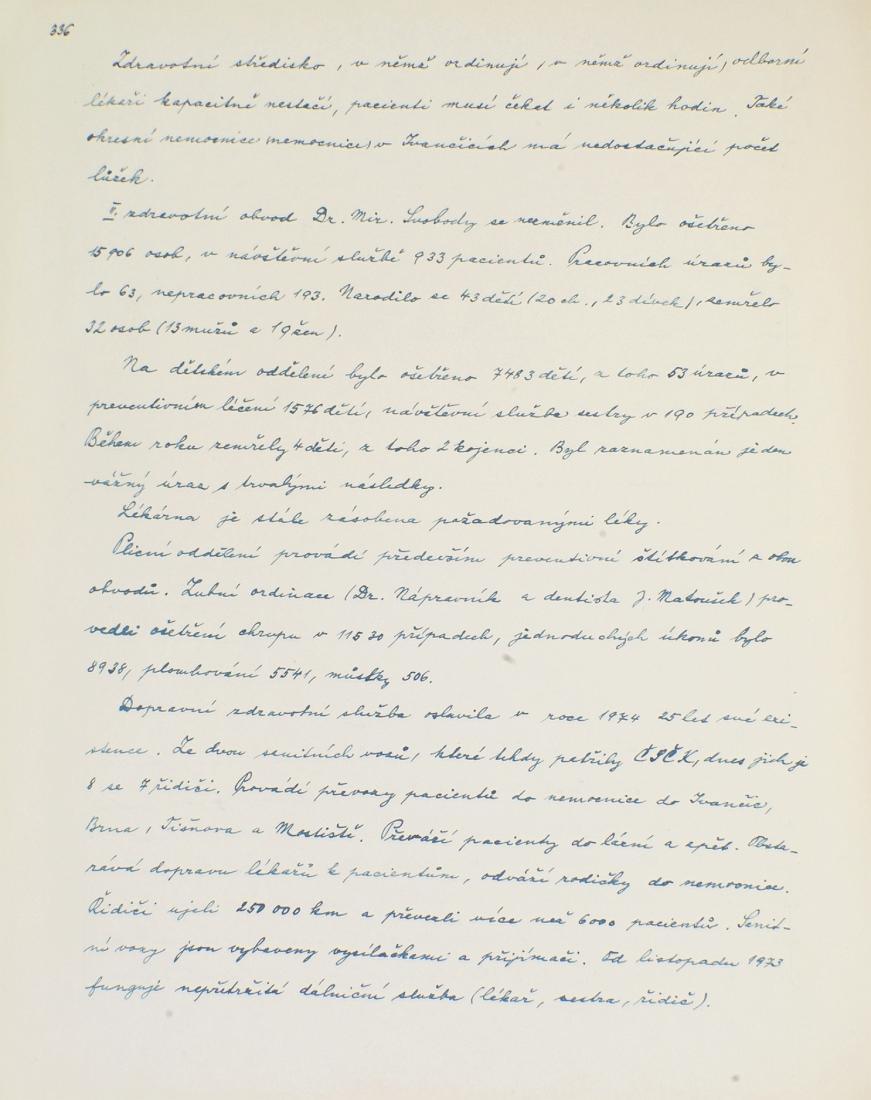 336
Zdravotní středisko, v němž ordinují, (v němž ordinují) odborní
lékaři kapacitně nestačí, pacienti musí čekat i několik hodin. Také
okresní nemocnice (nemocnice) v Ivančicích má nedostačující počet
lůžek.
II. zdravotní obvod Dr. Mir. Svobody se nezměnil. Bylo ošetřeno
15 906 osob, v návštěvní službě 933 pacientů. Pracovních úrazů by-
lo 63, nepracovních 193. Narodilo se 43 dětí (20 ch., 23 dívek), zemřelo
32 osob (13 mužů a 19 žen).
Na dětském oddělení bylo ošetřeno 7483 dětí, z toho 53 úrazů, v
preventivním léčení 1576 dětí, návštěvní služba sestry v 190 případech.
Během roku zemřely 4 děti, z toho 2 kojenci. Byl zaznamenán jeden
vážný úraz s trvalými následky.
Lékárna je stále zásobena požadovanými léky.
Plicní oddělení provádí především preventivní štítkování z obou
obvodů. Zubní ordinace (Dr. Nápravník a dentista J. Matoušek) pro-
vedli ošetření chrupu v 11530 případech, jednoduchých úkonů bylo
8938, plombování 5541, můstky 506.
Dopravní zdravotní služba oslavila v roce 1974 25 let své exi-
stence. Ze dvou sanitních vozů, které tehdy patřily ČSČK, dnes jich je
8 se 7 řidiči. Provádí převozy pacientů do nemocnice do Ivančic,
Brna, Tišnova a Mostiště. Převáží pacienty do lázní a zpět. Obsta-
rává dopravu lékařů k pacientům, odváží rodičky do nemocnice.
Řidiči ujeli 250 000 km a převezli více než 6000 pacientů. Sanit-
ní vozy jsou vybaveny vysílačkami a přijímači. Od listopadu 1973
funguje nepřetržitá dálniční služba (lékař, sestra, řidič).